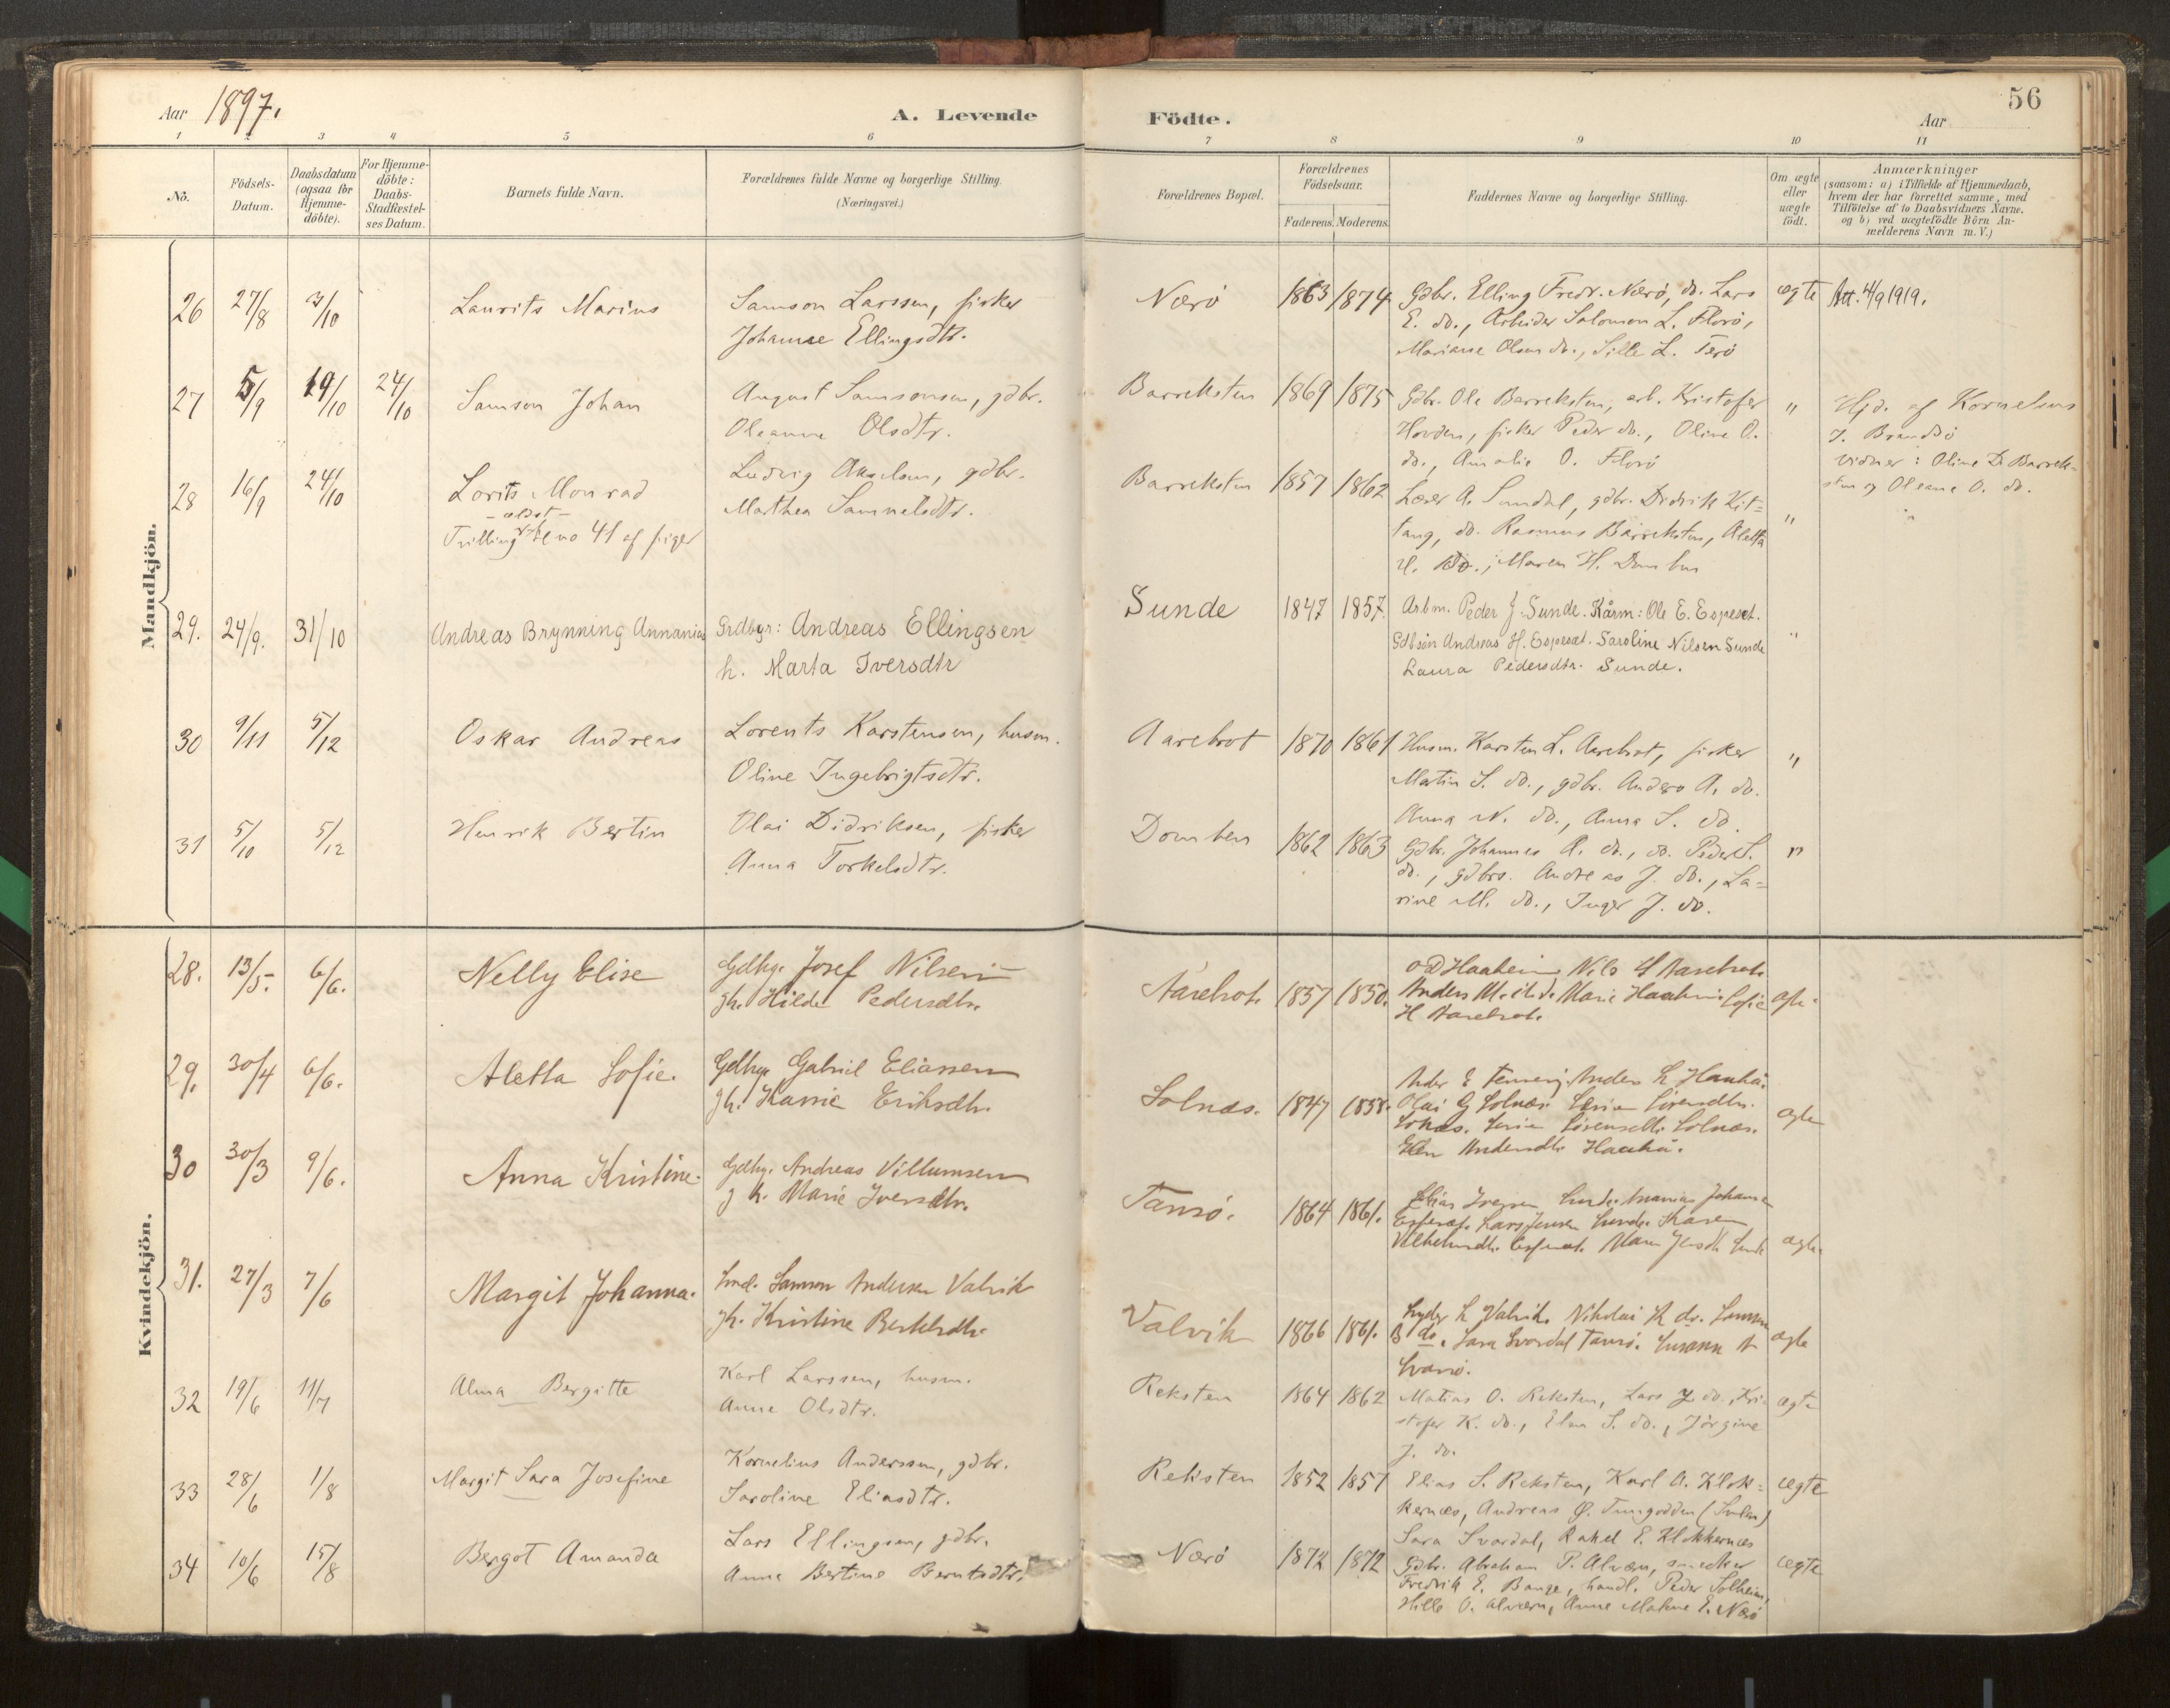 56
Aar 1897.
A. Levende Födte.
Aar
1 2 3 4 5 6 7 8 9 10 11
No.
Födsels-
Datum.
Daabsdatum
(ogsaa for
Hjemme-
döbte).
For Hjemme-
döbte:
Daabs-
Stadfestel-
ses Datum.
Barnets fulde Navn.
Forældrenes fulde Navne og borgerlige Stilling.
(Næringsvei.)
Forældrenes Bopæl.
Forældrenes
Födselsaar.
Faderens. Moderens.
Faddernes Navne og borgerlige Stilling.
Om ægte
eller
uægte
födt.
Anmærkninger
(saasom: a) i Tilfælde af Hjemmedaab,
hvem der har forrettet samme, med
Tilföielse af to Daabsvidners Navne.
og b) ved uægtefödte Börn An-
melderens Navn m. V.)
Mandkjön.
26 27/8 3/10 Laurits Marius
Samson Larssen, fisker
Johanne Ellingsdtr.
Nærö 1863 1874
Gdbr. Elling Fredr. Nærö, do. Lars
E. do., Arbeider Salomon L. Florö,
Mariane Olsen do., Sille L. Terö
ægte Att. 4/9 1919.
27 5/9 19/10 24/10 Samson Johan
August Samsonsen, gdbr.
Oleanne Olsdtr.
Barreksten 1869 1875
Gdbr. Ole Barreksten, arb. Kristofer
Hovden, fisker Peder do., Oline O.
do., Amalie O. Florö
"
Hjd. af Kornelius
J. Brandsö
Vidner: Oline D. Barrek-
sten og Oleane O. do.
28 16/9 24/10 Lorits Monrad
- ældst -
Trilling til no 41 af piger
Ludvig Akselsen, gdbr.
Marthea Samuelsdtr.
Barreksten 1857 1862
Lærer A. Sundal, gdbr. Didrik Kit=
tang, do. Rasmus Barreksten, Aletta
H. do., Maren H. Domben
"
29. 24/9. 31/10 Andreas Brynning Annanias
Grdbgr: Andreas Ellingsen
h. Marta Iversdtr
Sunde 1847 1857.
Arbm. Peder J. Sunde. Kårm: Ole E. Espeset.
Gdbsön Andreas H. Espeset. Saroline Nilsen Sunde
Laura Pedersdtr. Sunde.
"
30 9/11 5/12 Oskar Andreas
Lorents Karstensen, husm.
Oline Ingebrigtsdtr.
Aarebrot 1870 1861
Husm. Karsten L. Aarebrot, fisker
Martin S. do., gdbr. Anders A. do.
Anna N. do., Anna S. do.
"
31 5/10 5/12 Henrik Bertin
Olai Didriksen, fisker
Anna Torkelsdtr.
Domben 1862 1863
Gdbr. Johannes A. do., do. Peder S.
do., gdbrs. Andreas J. do., La=
rine M. do., Inger J. do.
"
Kvindekjön.
28. 13/5. 6/6. Nelly Elise
Gdbgr. Josef Nilsen
gh. Hilde Pedersdtr.
Aarebrot. 1857 1850.
O D Haaheim Nils H Aarebrot.
Anders M. Marie Haaheim Sofie
H Aarebrot.
ægte
29. 30/4 6/6. Aletta Sofie.
Gdbgr. Gabriel Eliassen
gh. Karrie Eriksdtr.
Solnæs. 1847 1858.
Anders L
Olai G Solnæs. Sörensdtr.
Solnæs. Sörensdtr. Solnæs.
Andersdtr.
ægte
30 30/3 9/6. Anna Kristine.
Gdbgr. Andreas Villumsen
g h. Marie Iversdtr.
Tansö. 1864 1861.
Elias Iversen Sunde. Ananias Johansen
Espeset. Lars Jensen Sunde. Karen
Vilhelmsdtr. Espeset. Sunde
ægte.
31. 27/3 7/6 Margit Johanna.
Samson Andersen Valvik
gh. Kristine Bertelsdtr.
Valvik 1866 1861.
Lyder L Valvik. Nikolai K do. Samson
B do. Sara Svordal Tansö. Susanna A
Svanö.
ægte
32 19/6 11/7 Alma Bergitte
Karl Larssen, husm.
Anne Olsdtr.
Reksten 1864 1862
Matias O. Reksten, Lars J. do., Kri-
stofer K. do., Elen S. do., Jörgine
J. do.
ægte
33 28/6 1/8 Margit Sara Josefine
Kornelius Anderssen, gdbr.
Saroline Eliasdtr.
Reksten 1852 1857
Elias S. Reksten, Karl A. Klok=
kernæs, Andreas Ø. Tungodden (Sulen)
Sara Svordal, Rakel E. Klokkernæs
ægte
34 10/6 15/8 Bergot Amanda
Lars Ellingsen, gdbr.
Anne Bertine Berntsdtr.
Nærö 1872 1872
Gdbr. Abraham P. Alværn, snedker
Fredrik E. Bauge, handl. Peder Solheim,
Hille O. Alværn, Anne Malene E. Nærö
ægte